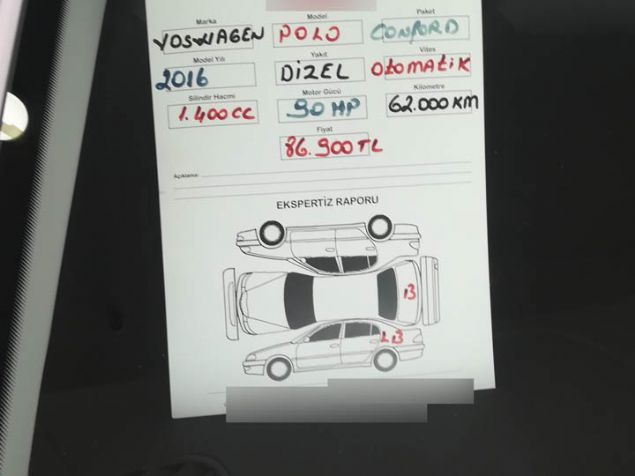 Marka Model Paket
VOSWAGEN POLO CONFORD
Model Yılı Yakıt Vites
2016 DİZEL OTOMATİK
Silindir Hacmi Motor Gücü Kilometre
1.400CC 90 HP 62.000 KM
Fiyat
86.900 TL
Açıklama:
EKSPERTİZ RAPORU
B
LB